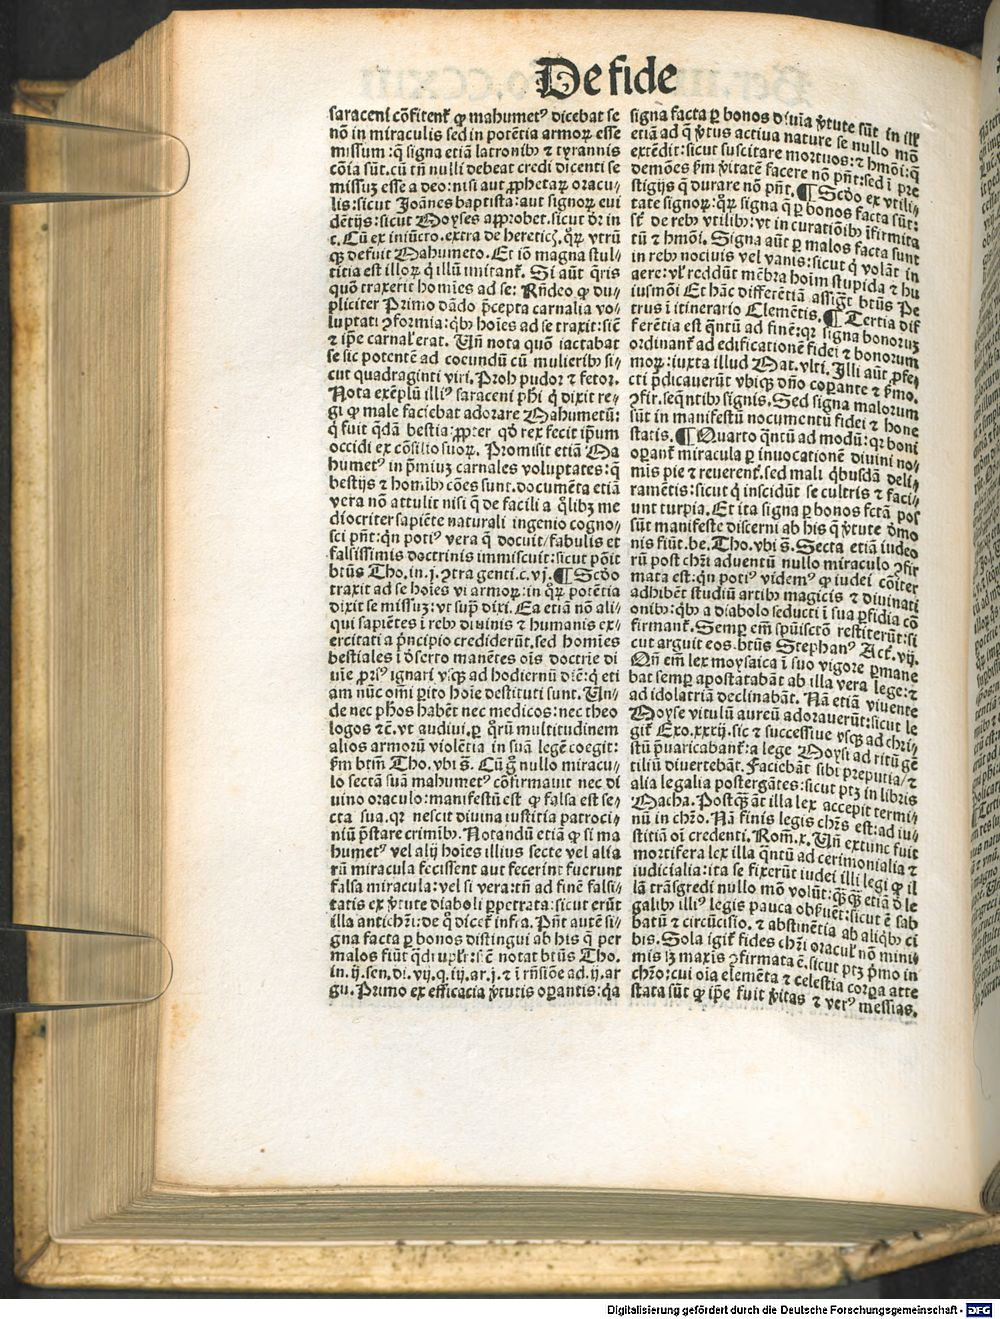 De fide
saraceni cōfitenť ꝙ mahumetꝰ dicebat se
nō in miraculis sed in potētia armoꝝ esse
missum: q̄ signa etiā latronibꝫ ⁊ tyrannis
cōia sūt. cū tn̄ nulli debeat credi dicenti se
missuꝫ esse a deo: nisi aut ꝓphetaꝝ oracu⸗
lis: sicut Joānes baptista: aut signoꝝ eui
dētijs: sicut Moyses approbet. sicut dr̄ in
c. Cū ex iniūcto. extra de heretic̄. qꝝ vtrū
qꝫ defuit Mahumeto. Et iō magna stul⸗
titia est illoꝝ q̇ illū imitanť. Si aūt q̄ris
quō traxerit homīes ad se: Rn̄deo ꝙ du⸗
pliciter Primo dādo p̄cepta carnalia vo⸗
luptati ꝯformia: qꝫ hoīes ad se traxit: sic̄
⁊ ip̄e carnal' erat. Un̄ nota quō iactabat
se sic potentē ad cocundū cū mulieribꝫ si⸗
cut quadraginti viri. Proh pudor ⁊ fetor.
Nota exēplū illiꝰ saraceni ph̄i q̇ dixit re⸗
gi ꝙ male faciebat adorare Mahumetū:
q̇ fuit q̄dā bestia: ꝓpter qd̄ rex fecit ip̄um
occidi ex cōsilio suoꝝ. Promisit etiā Ma
humetꝰ in p̄miuꝫ carnales voluptates: q̄
bestijs ⁊ homībꝫ cōes sunt. documēta etiā
vera nō attulit nisi q̄ de facili a q̇libꝫ me
diocriter sapiēte naturali ingenio cogno⸗
sci pn̄t: qn̄ potiꝰ vera q̄ docuit / fabulis et
falsissimis doctrinis immiscuit: sicut pōit
btūs Tho. in. j. ꝯtra genti. c. vj. ¶ Scd̄o
traxit ad se hoīes vi armoꝝ: in qꝝ potētia
dixit se missuꝫ: vt sup̄ dixi. Ea etiā nō ali⸗
qui sapiētes ī rebꝫ diuinis ⁊ humanis ex⸗
ercitati a p̄ncipio crediderūt. sed homīes
bestiales ī d̓serto manētes oīs doctrīe di
uīe ꝓrsꝰ ignari vsqꝫ ad hodiernū diē: q̇ eti
am nūc omī ꝑito hoīe destituti sunt. Un⸗
de nec ph̄os habēt nec medicos: nec theo
logos ⁊c̄. vt audiui. ꝑ qꝝ multitudinem
alios armorū violētia in suā legē coegit:
ẜm btm̄ Tho. vbi s̄. Cū g̊ nullo miracu⸗
lo sectā suā mahumetꝰ cōfirmauit nec di
uino oraculo: manifestū est ꝙ falsa est se⸗
cta sua. qꝛ nescit diuina iustitia patroci⸗
niū p̄stare crimībꝫ. Notandū etiā ꝙ si ma
humetꝰ vel alij hoīes illius secte vel alia
rū miracula fecissent aut fecerint fuerunt
falsa miracula: vel si vera: tn̄ ad finē falsi⸗
tatis ex v̓tute diaboli ꝑpetrata: sicut erūt
illa antichr̄i: de q̊ dicet̓ infra. Pn̄t autē si⸗
gna facta ꝑ bonos distingui ab his q̄ per
malos fiūt q̄druplr̄: sic̄ notat btūs Tho.
in. ij. sen. di. vij. q. iij. ar. j. ⁊ ī rn̄siōe ad. ij. ar
gu. Primo ex efficacia v̓tutis oꝑantis: q̄a
signa facta ꝑ bonos diuīa v̓tute sūt in ill'
etiā ad q̄ v̓tus actiua nature se nullo mō
extēdit: sicut suscitare mortuos: ⁊ hmōi: q̄
demōes ẜm v̓itatē facere nō pn̄t: sed ī pre
stigijs q̄ durare nō pn̄t. ¶ Scd̄o ex vtili⸗
tate signoꝝ: qꝛ signa q̄ ꝑ bonos facta sūt:
st̄ de rebꝫ vtilibꝫ: vt in curatiōibꝫ īfirmita
tū ⁊ hmōi. Signa aūt ꝑ malos facta sunt
in rebꝫ nociuis vel vanis: sicut q̇ volāt in
aere: vl' reddūt mēbra hoīm stupida ⁊ hu
iusmōi Et hāc differētiā assignt̄ btūs Pe
trus ī itinerario Clemētis. ¶ Tertia dif
ferētia est q̄ntū ad finē: qꝛ signa bonoruꝫ
ordinant̓ ad edificationē fidei ⁊ bonorum
moꝝ: iuxta illud Mat. vlti. Illi aūt ꝓfe⸗
cti p̄dicauerūt vbiqꝫ dn̄o coꝑante ⁊ ẜmo.
ꝯfir. seq̄ntibꝫ signis. Sed signa malorum
sūt in manifestū nocumentū fidei ⁊ hone
statis. ¶ Quarto q̄ntū ad modū: qꝛ boni
oꝑant̓ miracula ꝑ inuocationē diuini no⸗
mis pie ⁊ reuerent̓. sed mali q̇busdā deli⸗
ramētis: sicut q̇ inscidūt se cultris ⁊ faci⸗
unt turpia. Et ita signa ꝑ bonos fctā pos
sūt manifeste discerni ab his q̄ v̓tute d̓mo
nis fiūt. be. Tho. vbi s̄. Secta etiā iudeo
rū post chr̄i aduentū nullo miraculo ꝯfir
mata est: qn̄ potiꝰ videmꝰ ꝙ iudei cōiter
adhibēt studiū artibꝫ magicis ⁊ diuinati
onibꝫ: qbꝫ a diabolo seducti ī sua ꝑfidia cō
firmant̓. Semꝑ em̄ sp̄uiscto restiterūt: si
cut arguit eos btūs Stephanꝰ Act̓. vij.
Qn̄ em̄ lex moysaica ī suo vigore ꝑmane
bat semꝑ apostatabāt ab illa vera lege: ⁊
ad idolatriā declinabāt. Nā etiā viuente
Moyse vitulū aureū adorauerūt: sicut le
git̓ Exo. xxxij. sic ⁊ successiue vsqꝫ ad chri⸗
stū p̄uaricabant̓: a lege Moysi ad ritū gē
tiliū diuertebāt. Faciebāt sibi preputia / ⁊
alia legalia postergātes: sicut ptꝫ in libris
Macha. Postqꝫ āt illa lex accepit termi⸗
nū in chr̄o. Nā finis legis chr̄s est: ad iu⸗
stitiā oī credenti. Rom̄. x. Un̄ extunc fuit
mortifera lex illa q̄ntū ad cerimonialia ⁊
iudicialia: ita se fixerūt iudei illi legi ꝙ il
lā trāsgredi nullo mō volūt: qꝫqꝫ etiā d̓ le
galibꝫ illiꝰ legis pauca obẜuēt: sicut ē sab
batū ⁊ circūcisio. ⁊ abstinētia ab aliqbꝫ ci
bis. Sola igit̓ fides chr̄i oracul' nō mini⸗
mis iꝫ maxīs ꝯfirmata ē. sicut ptꝫ p̄mo in
chr̄o: cui oīa elemēta ⁊ celestia corꝑa atte
stata sūt ꝙ ip̄e fuit v̓itas ⁊ verꝰ messias.
Digitalisierung gefördert durch die Deutsche Forschungsgemeinschaft - DFG